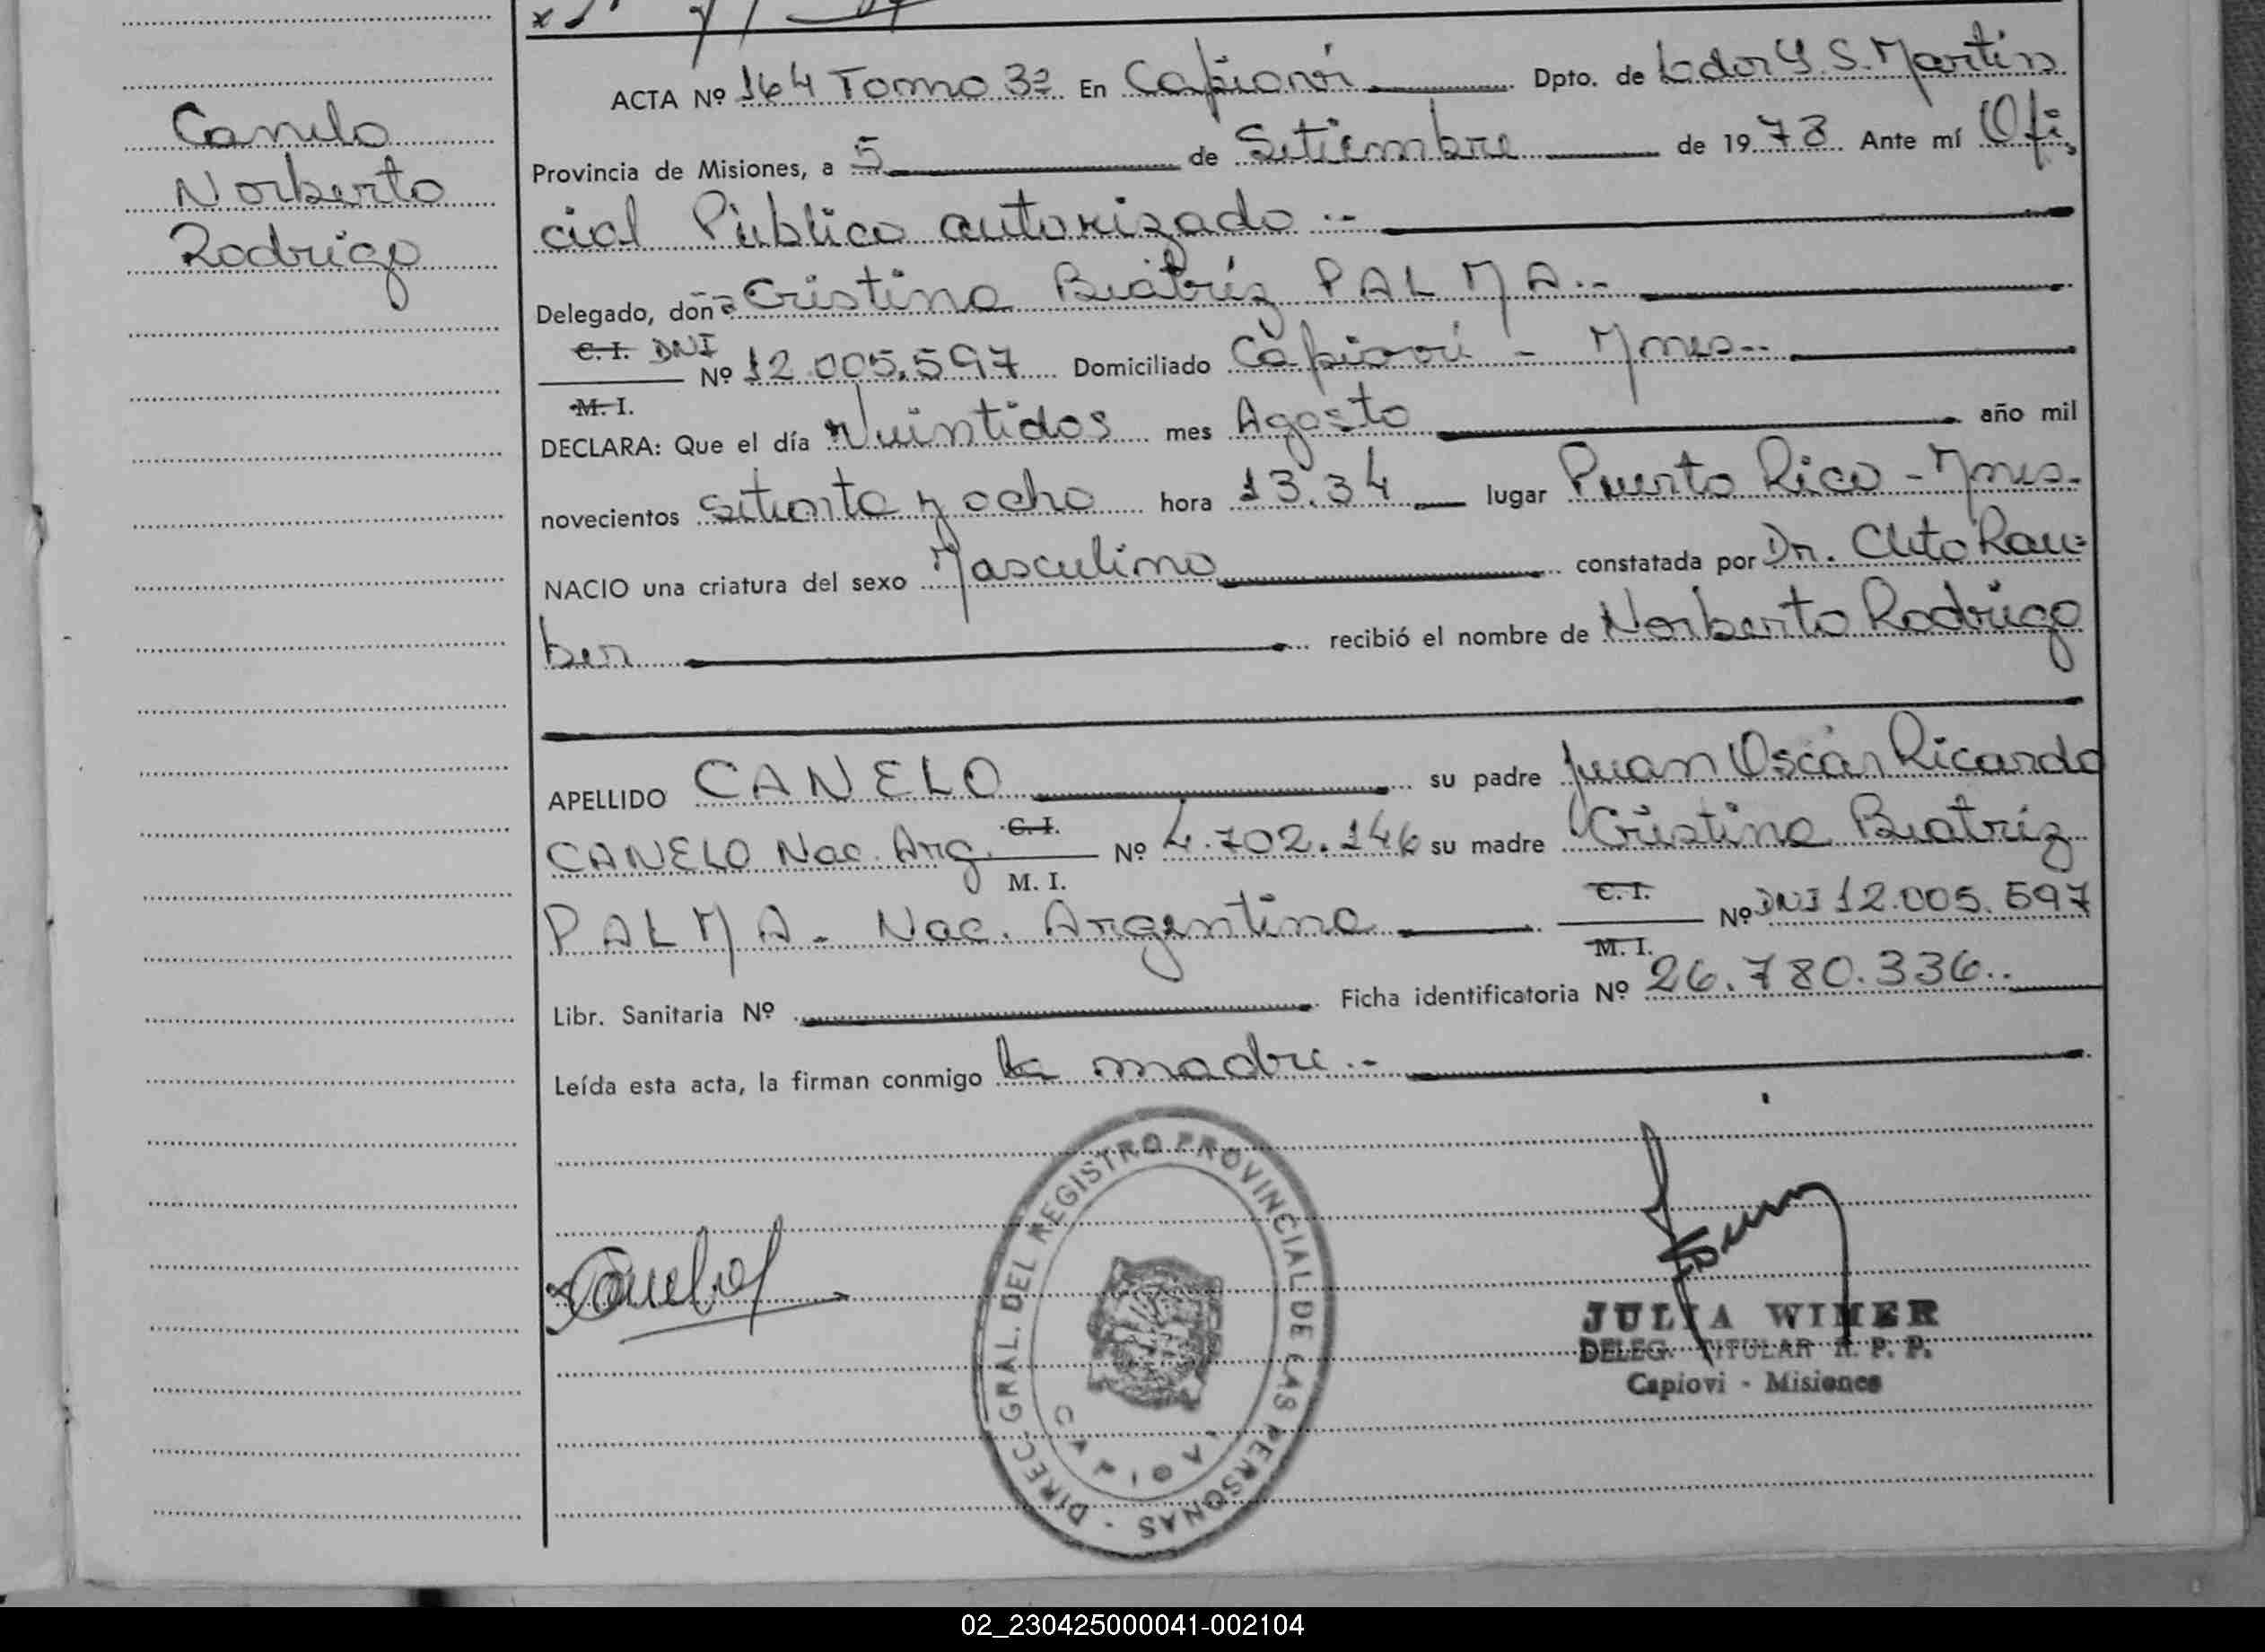 Canelo
Norberto
Rodrigo
ACTA Nº 164 Tomo 3º En Capioví Dpto. de Ldor G. S. Martín
Provincia de Misiones, a 5 de Setiembre de 1978 Ante mí Ofi,
cial Público autorizado.--
Delegado, doña Cristina Beatríz PALMA.--
C. I. DNI
Nº 12.005.597 Domiciliado Capioví - Mnes.--
M. I.
DECLARA: Que el día Veintidos mes Agosto año mil
novecientos setenta y ocho hora 13.34 lugar Puerto Rico - Mnes.
NACIO una criatura del sexo Masculino constatada por Dr. Cleto Rau=
ber recibió el nombre de Norberto Rodrigo
APELLIDO CANELO su padre Juan Oscar Ricardo
CANELO Nac. Arg. C. I. Nº 4.702.146 su madre Cristina Beatríz
M. I.
PALMA. Nac. Argentina C. I. Nº DNI 12.005.597
M. I.
Libr. Sanitaria Nº Ficha identificatoria Nº 26.780.336..
Leída esta acta, la firman conmigo la madre.--
DIREC. GRAL. DEL REGISTRO PROVINCIAL DE LAS PERSONAS -
CAPIOVI
JULIA WIMER
DELEG. TITULAR R. P. P.
Capiovi - Misiones
02_230425000041-002104